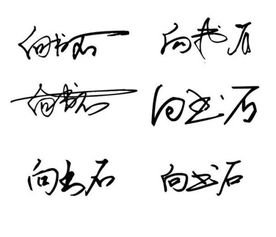 向书石 向书石
向书石 向书石
向书石 向书石